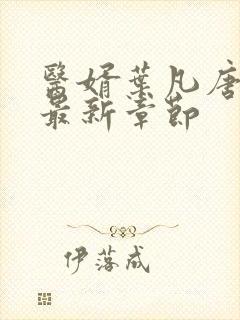 醫婿葉凡唐
最新章節
伊落成